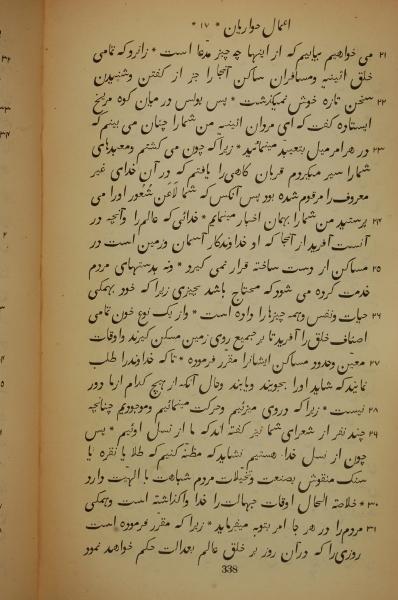 اعمال حواریان * ۱۷ *
۲۱ می خواهیم بیابیم که از اینها چه چیز مدّعا است * زانرو که تمامی
خلق اثینیه ومسافران ساکن آنجا را جز از کفتن وشنیدن
۲۲ سخن تازه خوش نمیکذشت * پس پولس در میان کوه مریخ
ایستاده کفت که ای مردان اثینیه من شما را چنان می بینم که
۲۳ در هر امر میل بتعبید مینمائید * زیرا که چون می کشتم ومعبدهای
شما را سیر میکردم قربان کاهی را یافتم که در آن خدای غیر
معروف را مرقوم شده بود پس آنکس که شما لاعن شعور اورا می
۲۴ پرستید من شما را بهمان اخبار مینمایم * خدائی که عالم را وآنچه در
آنست آفرید از آنجا که او خداوندکار آسمان وزمین است در
۲۵ مساکن از دست ساخته قرار نمی کیرد * ونه بدستهای مردم
خدمت کرده می شود که محتاج باشد بچیزی زیرا که خود بهمکی
۲۶ حیات ونفس وهمه چیز را داده است * واز یک نوع خون تمامی
اصناف خلق را آفرید تا بر جمیع روی زمین مسکن کیرند واوقات
۲۷ معیّن وحدود مساکن ایشانرا مقرّر فرموده * تا که خداوند را طلب
نمایند که شاید اورا بجویند ویابند وحال آنکه از هیچ کدام از ما دور
۲۸ نیست * زیرا که در وی میزئیم وحرکت مینمائیم وموجودیم چنانچه
۲۹ چند نفر از شعرای شما نیز کفته اند که ما از نسل اوئیم * پس
چون از نسل خدا هستیم نشاید که مظنّه کنیم که طلا یا نقره یا
سنک منقوش بصنعت وتخیلات مردم شباهت با الهیت دارد
۳۰ * خلاصه الحال اوقات جهالت را خدا واکذاشته است وهمکی
۳۱ مردم را در هر جا امر بتوبه میفرماید * زیرا که مقرّر فرموده است
روزی را که در آن روز بر خلق عالم بعدالت حکم خواهد نمود
338